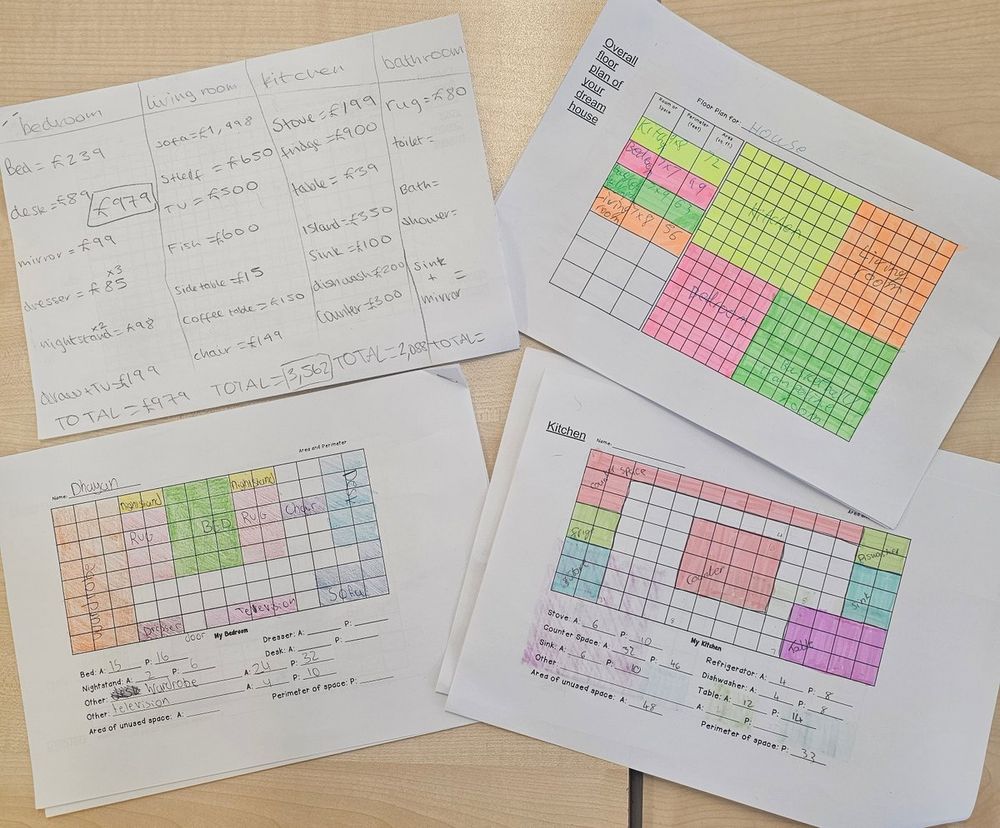 bedroom
Bed = £239
desk = £89
£979
mirror = £99
x3
dresser = £85
x2
nightstand = £98
draw + TV = £199
TOTAL = £979
living room
sofa = £1,998
Shelf = £650
TV = £500
Fish = £600
Side table = £15
Coffee table = £150
chair = £149
TOTAL = 3,562
kitchen
Stove = £199
fridge = £900
table = £39
island = £350
Sink = £100
dishwash £200
Counter = £300
TOTAL = 2,088
bathroom
rug = £80
toilet =
Bath =
shower =
Sink
+ =
mirror
TOTAL =
Overall
floor
plan of
your
dream
house
Floor Plan for: HOUSE
Room or Space
Perimeter (feet)
Area (sq.ft)
Kitchen
12
49
63
Living room 7x8 56
Kitchen
Living room
Bedroom
Area and Perimeter
Name: Dhayan
nightstand
nightstand
BED
RUG
RUG
Chair
Desk
Sofa
Television
Dresser
door
My Bedroom
Bed: A: 15 P: 16
Dresser: A: P:
Nightstand: A: 2 P: 6
Desk: A: P:
Other: Wardrobe A: 24 P: 32
Other: television A: 4 P: 10
Area of unused space: A:
Perimeter of space: P:
Kitchen
Name:
counter space
Frigf
Counter
Diswasher
Sink
Table
My Kitchen
Stove: A: 6 P: 10
Refrigerator: A: 4 P: 8
Counter Space: A: 32 P: 46
Dishwasher: A: 4 P: 8
Sink: A: 6 P: 10
Table: A: 12 P: 14
Other A: P:
Area of unused space: A: 48
Perimeter of space: P: 33